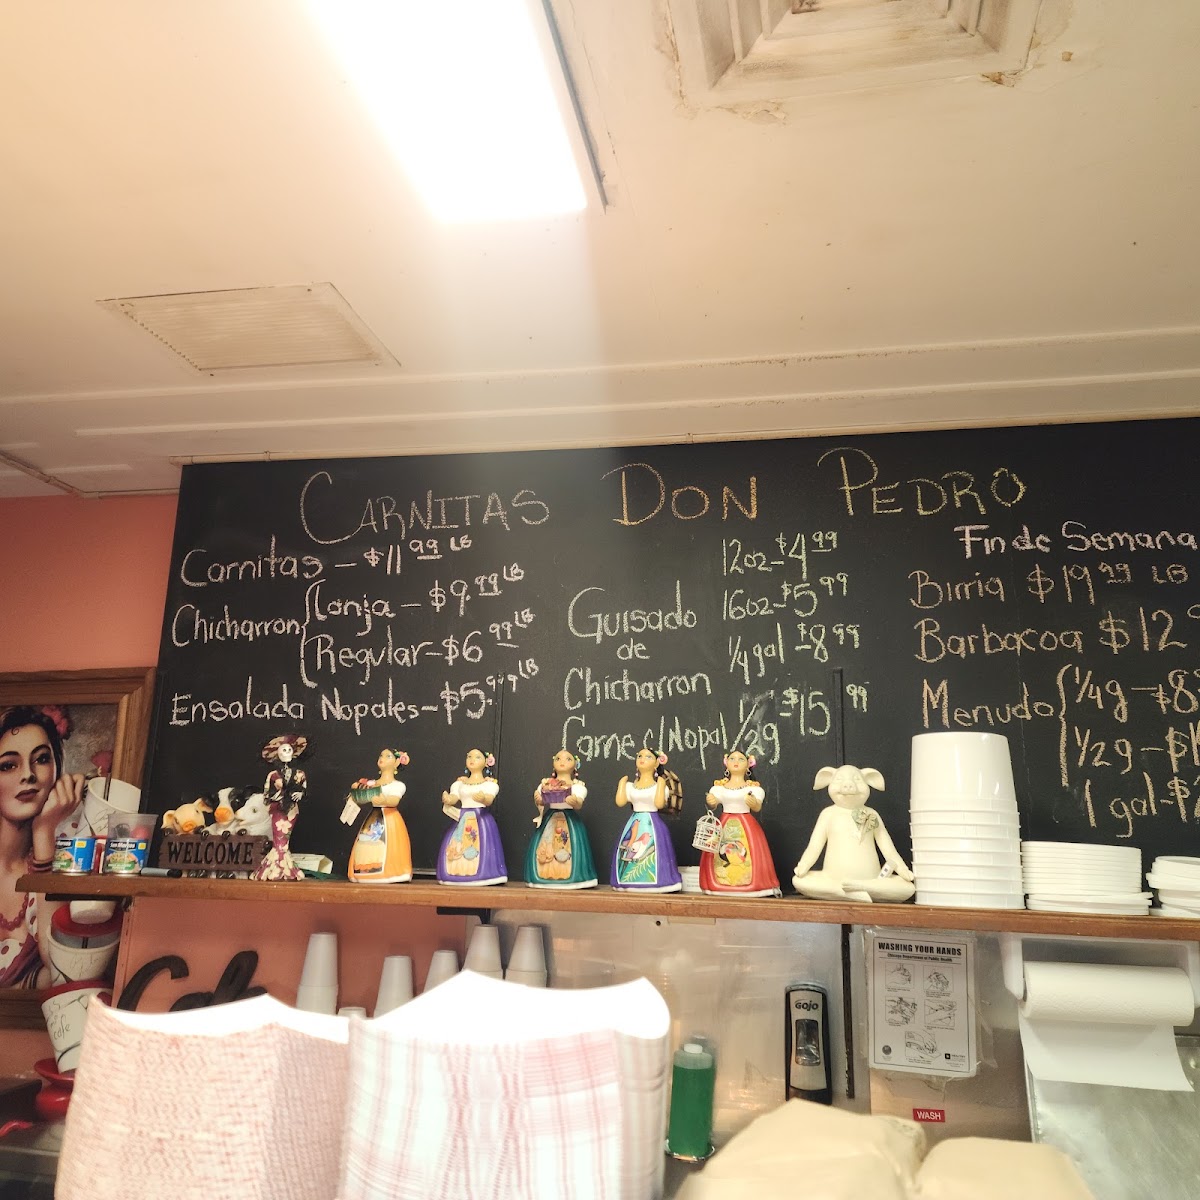 CARNITAS DON PEDRO
Carnitas - $11.99 LB
Chicharron
Lonja - $9.99 LB
Regular - $6.99 LB
Ensalada Nopales - $5.99 LB
Guisado
de
Chicharron
Carne c/Nopal
12oz - $4.99
16oz - $5.99
1/4 gal - $8.99
1/2g - $15.99
Fin de Semana
Birria $19.99 LB
Barbacoa $12
Menudo
1/4g - $8
1/2g - $1
1 gal - $
WELCOME
WASHING YOUR HANDS
Chicago Department of Public Health
GOJO
WASH
cafe